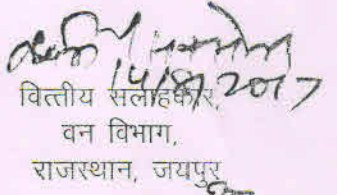 14/8/2017
वित्तीय सलाहकार,
वन विभाग,
राजस्थान, जयपुर